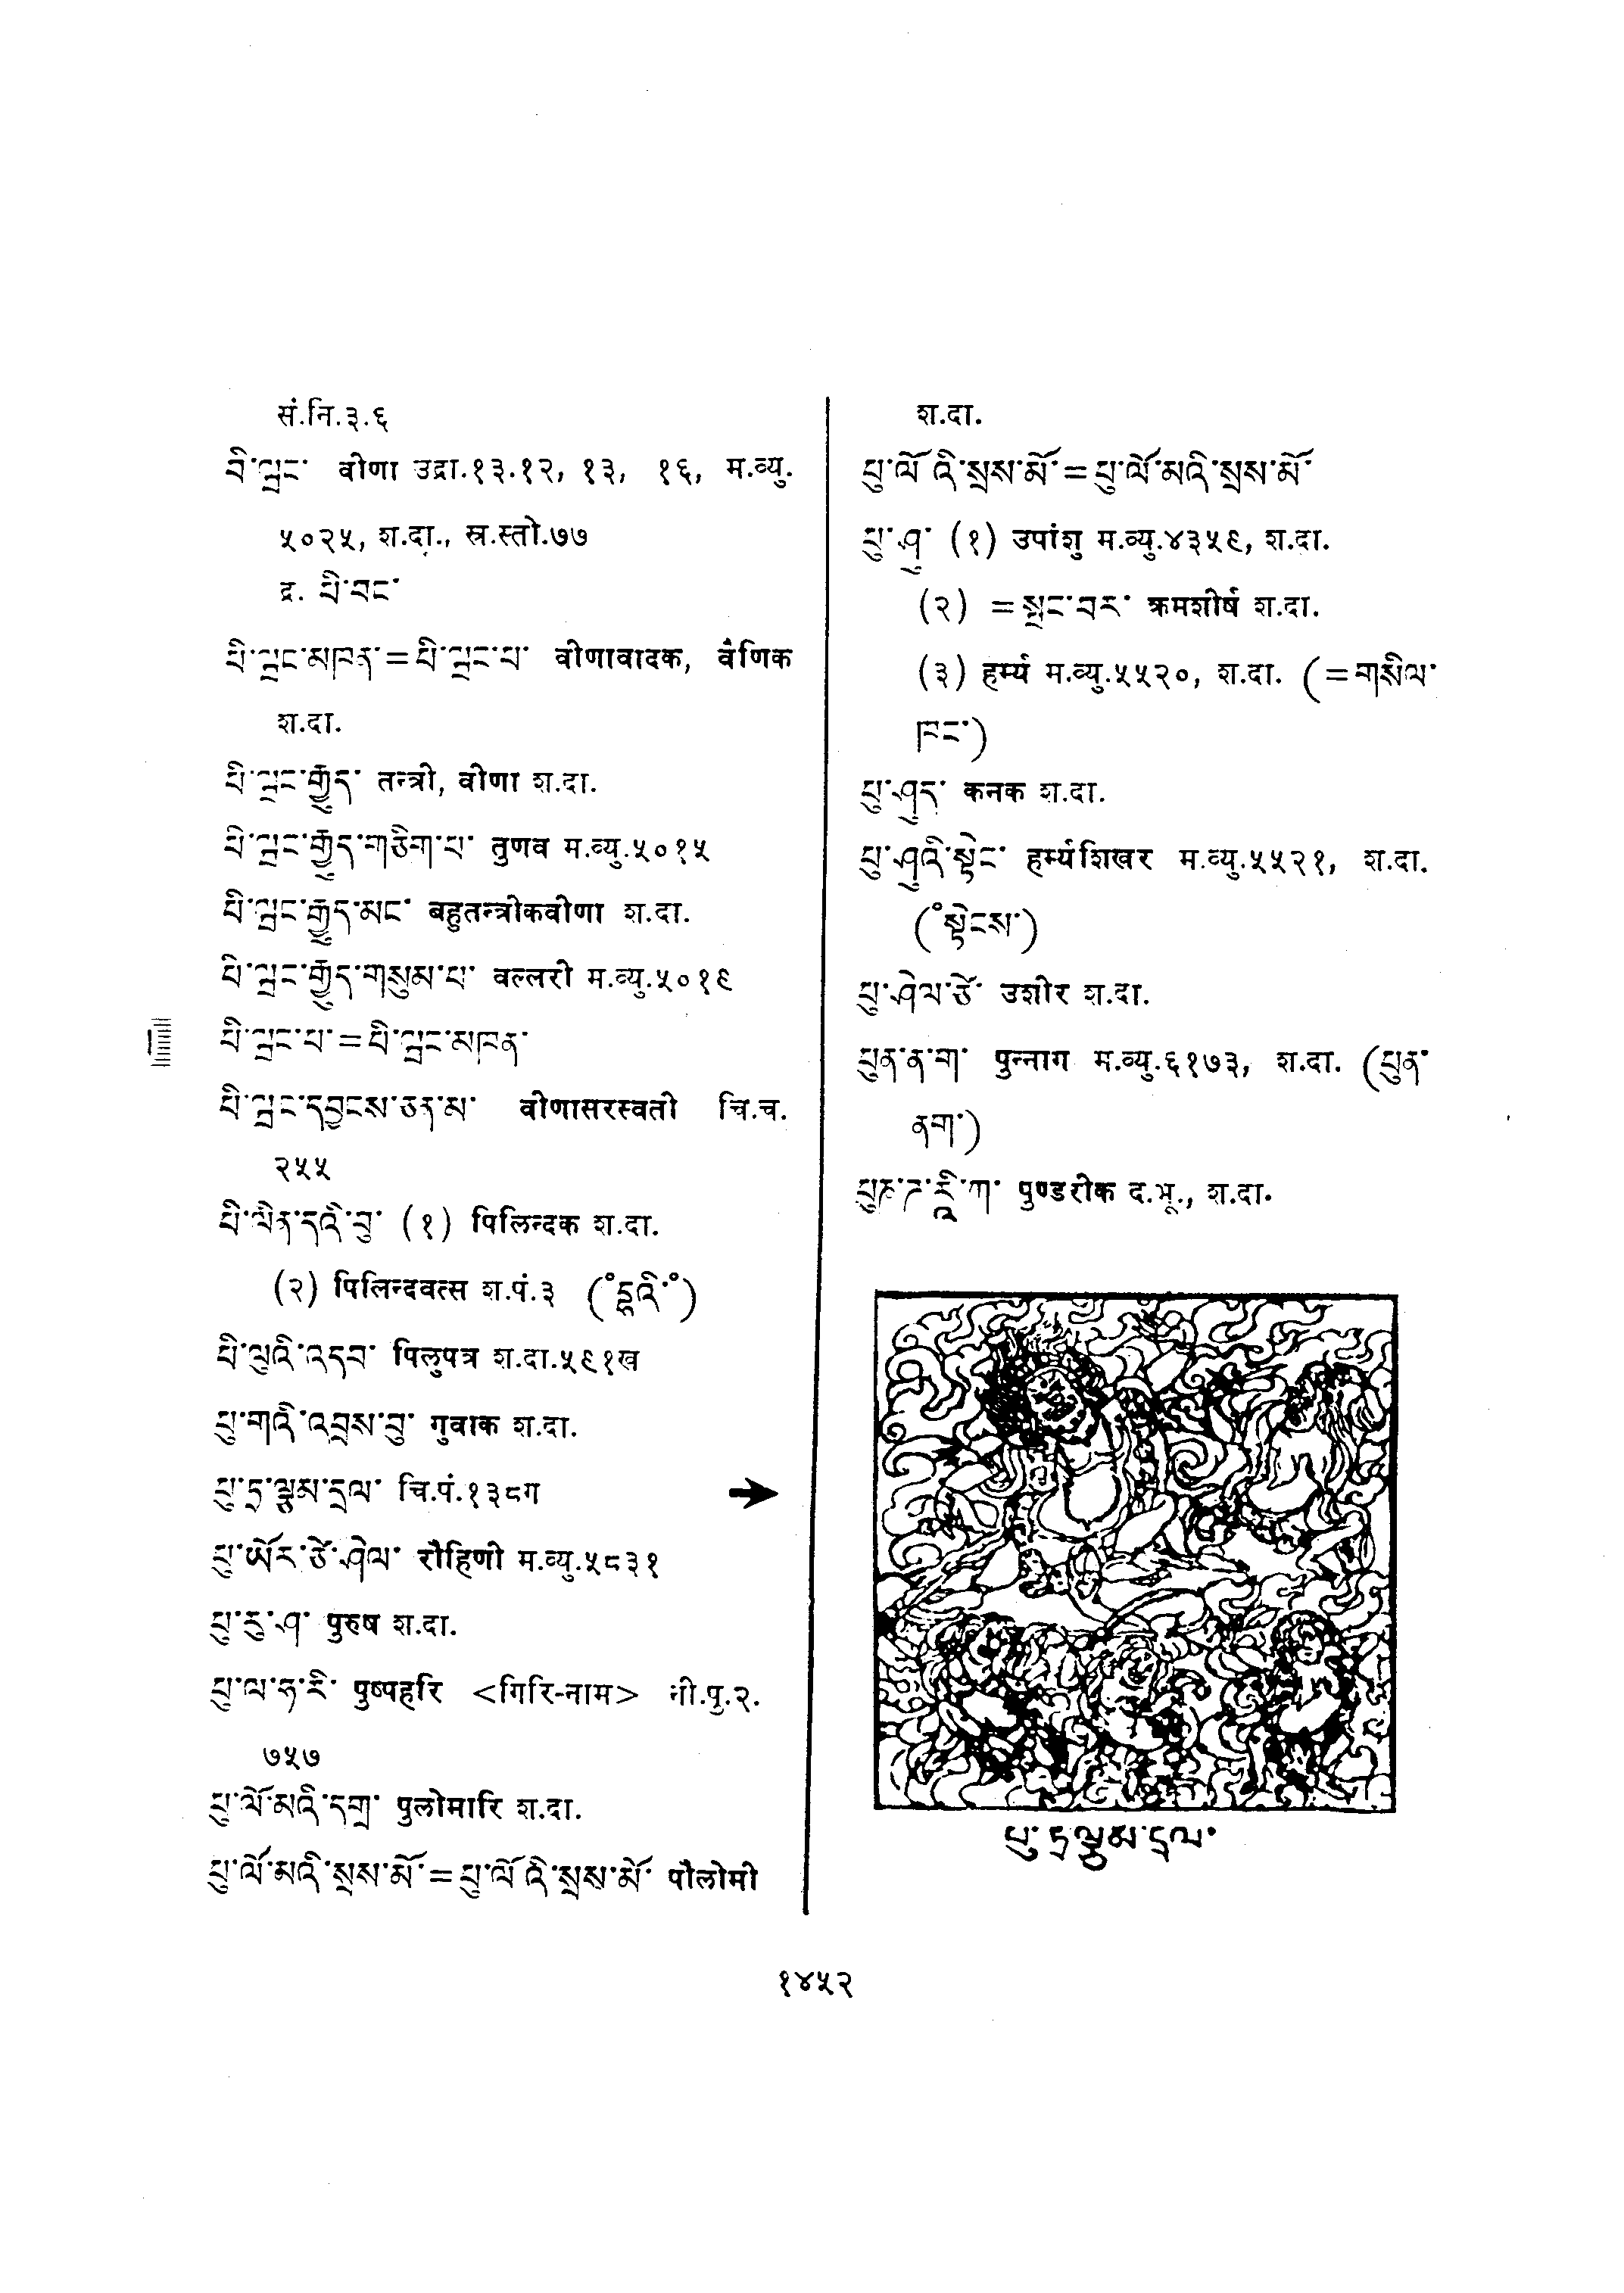 सं.नि.३.६
པི་ཝང་ वीणा उद्रा.१३.१२, १३, १६, म.व्यु.
५०२५, श.दा., स्र.स्तो.७७
द्र. པི་བང་
པི་ཝང་མཁན་=པི་ཝང་པ་ वीणावादक, वैणिक
श.दा.
པི་ཝང་རྒྱུད་ तन्त्री, वीणा श.दा.
པི་ཝང་རྒྱུད་གཅིག་པ་ तुणव म.व्यु.५०१५
པི་ཝང་རྒྱུད་མང་ बहुतन्त्रीकवीणा श.दा.
པི་ཝང་རྒྱུད་གསུམ་པ་ वल्लरी म.व्यु.५०१९
པི་ཝང་པ་=པི་ཝང་མཁན་
པི་ཝང་དབྱངས་ཅན་མ་ वीणासरस्वती चि.च.
२५५
པི་ལིན་དའི་བུ་ (१) पिलिन्दक श.दा.
(२) पिलिन्दवत्स श.पं.३ (°ནྡའི་°)
པི་ལུའི་འདབ་ पिलुपत्र श.दा.५९१ख
པུ་གའི་འབྲས་བུ་ गुवाक श.दा.
པུ་ཏྲ་ལྕམ་དྲལ་ चि.पं.१३८ग
པུ་ཡོར་ཙེ་ཤེལ་ रौहिणी म.व्यु.५८३१
པུ་རུ་ཤ་ पुरुष श.दा.
པུ་ལ་ཧ་རི་ पुष्पहरि <गिरि-नाम> नी.पु.२.
७५७
པུ་ལོ་མའི་དགྲ་ पुलोमारि श.दा.
པུ་ལོ་མའི་སྲས་མོ་=པུ་ལོ འི་སྲས་མོ་ पौलोमी
श.दा.
པུ་ལོ འི་སྲས་མོ་=པུ་ལོ་མའི་སྲས་མོ་
པུ་ཤུ་ (१) उपांशु म.व्यु.४३५९, श.दा.
(२) =སྲང་བར་ क्रमशीर्ष श.दा.
(३) हर्म्य म.व्यु.५५२०, श.दा. (=གསིལ་
ཁང་)
པུ་ཤུད་ कनक श.दा.
པུ་ཤུའི་སྟེང་ हर्म्यशिखर म.व्यु.५५२१, श.दा.
(°སྟེངས་)
པུ་ཤེལ་ཙེ་ उशीर श.दा.
པུན་ན་ག་ पुन्नाग म.व्यु.६१७३, श.दा. (པུན་
ནག་)
པུཎ་ཌ་རཱི་ཀ་ पुण्डरीक द.भू., श.दा.
པུ་ཏྲ་ལྕམ་དྲལ་
१४५२